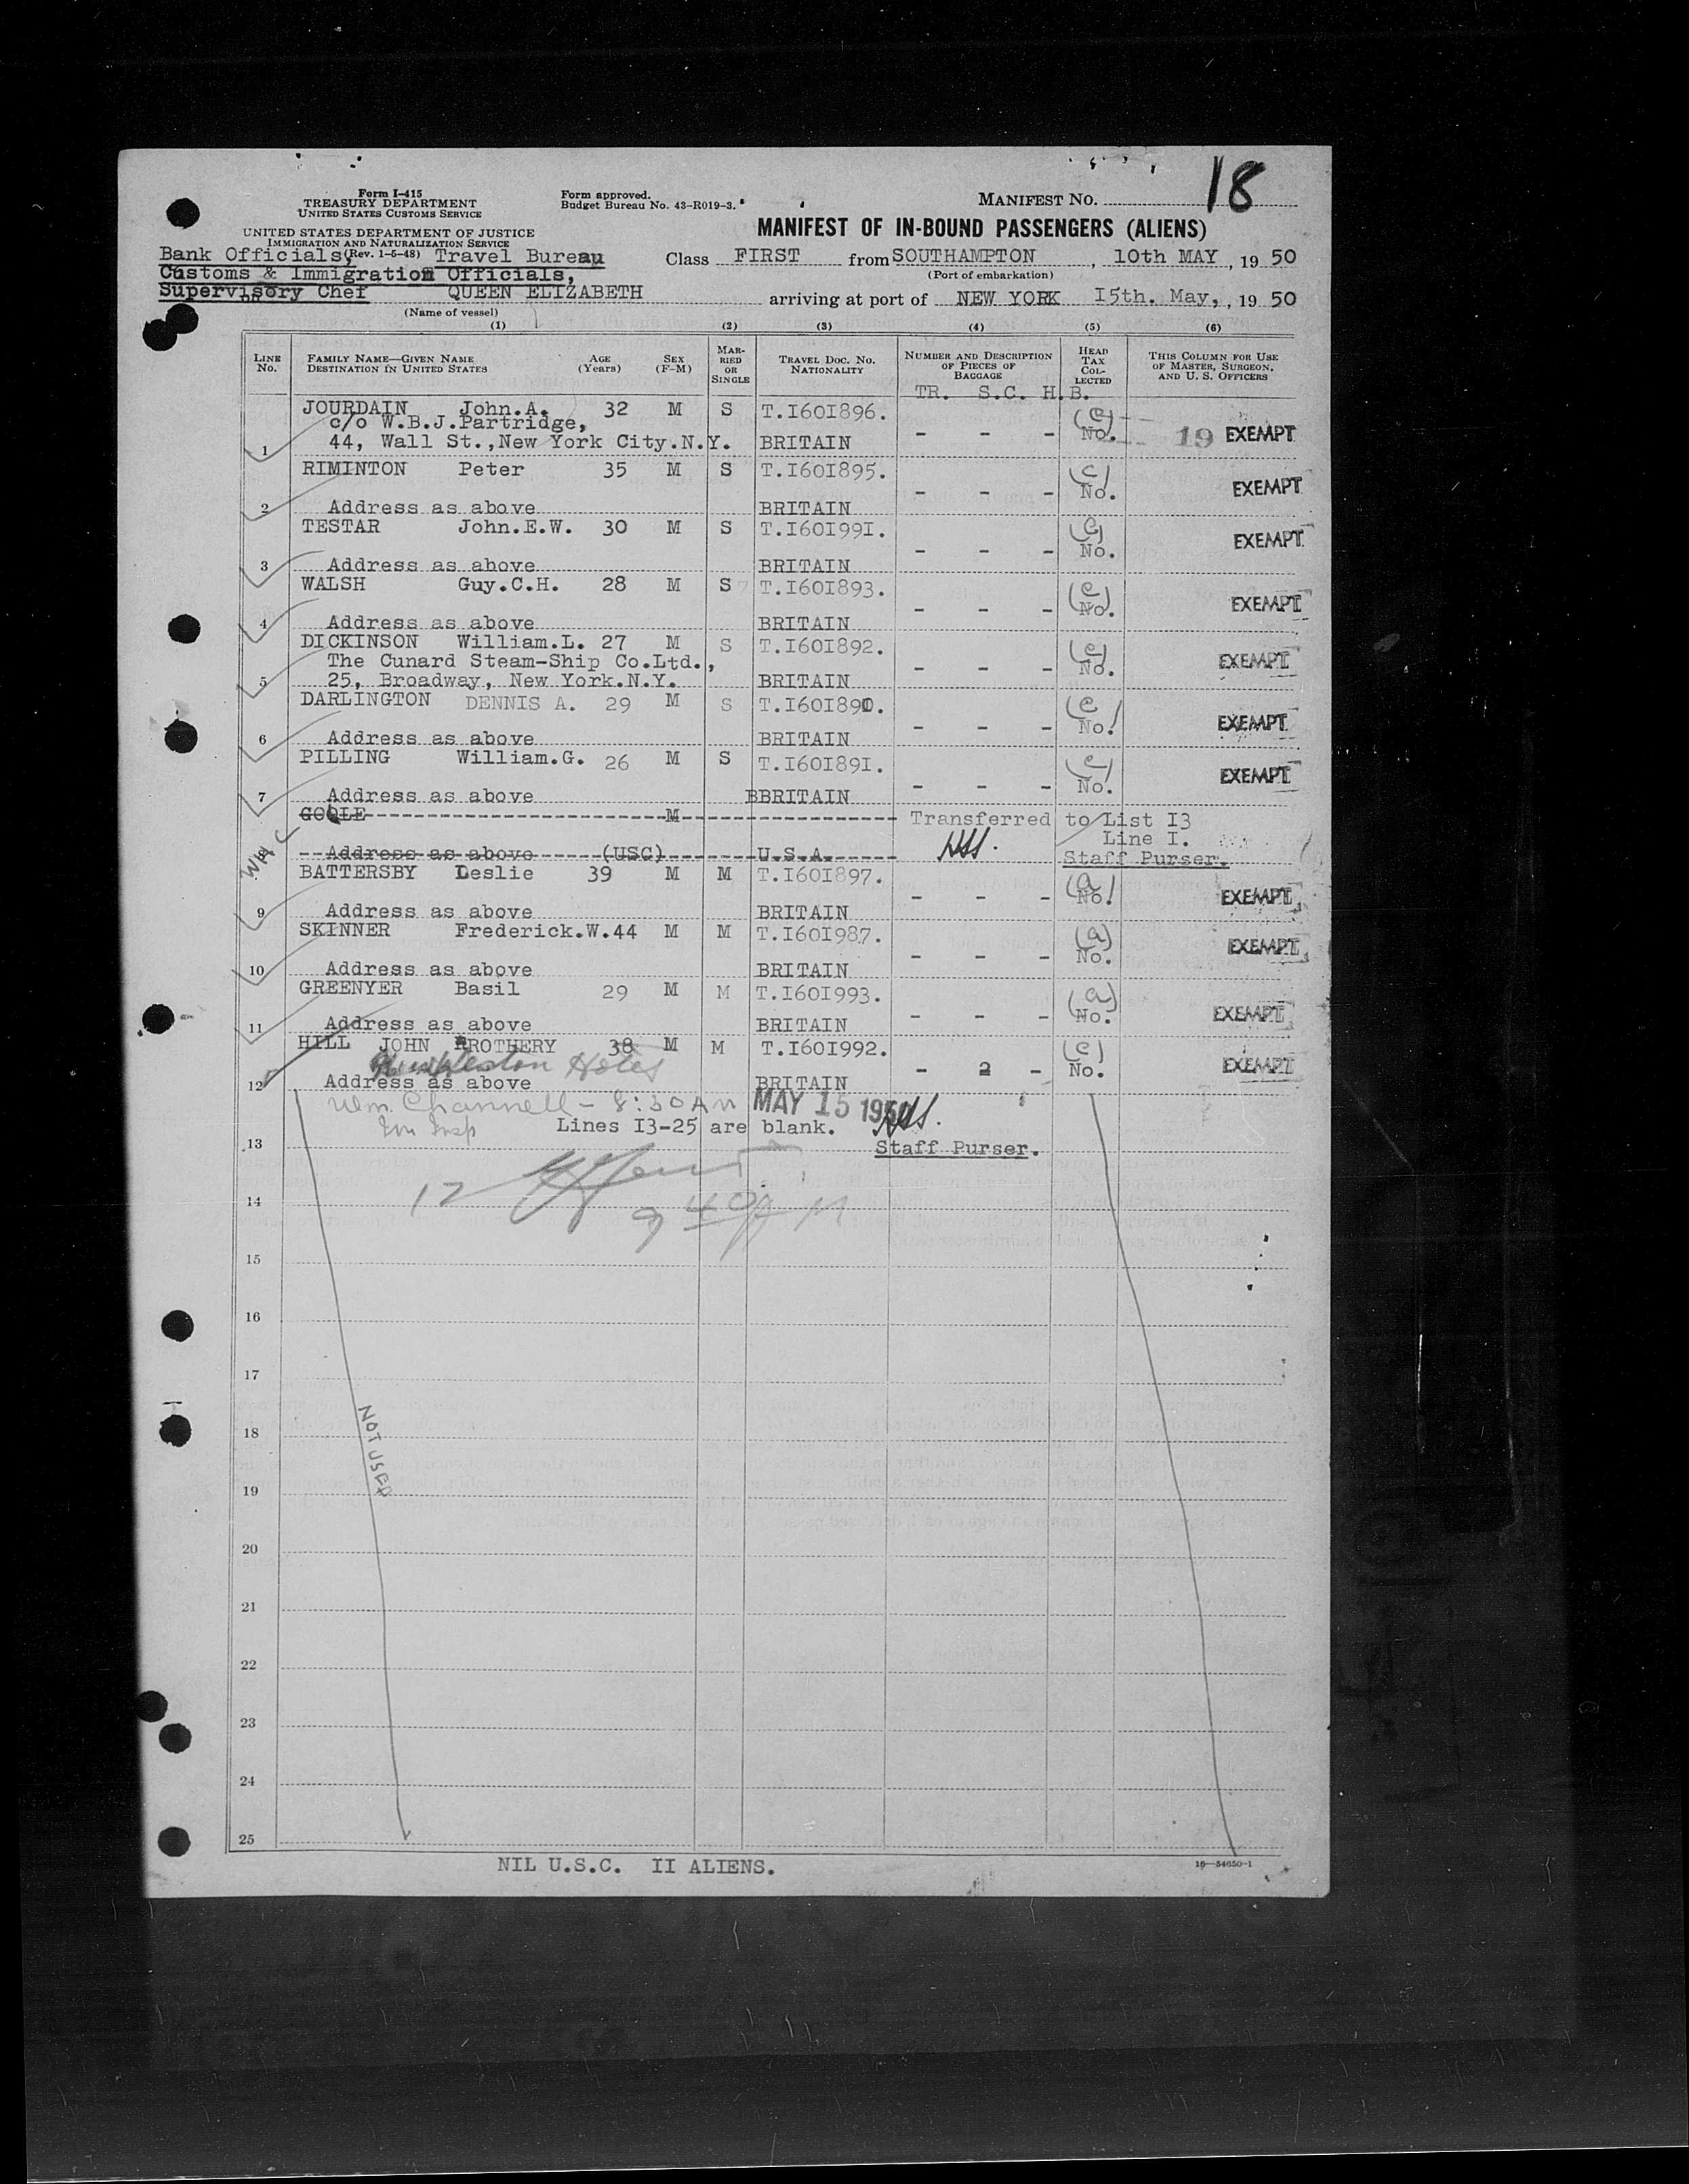 18
Form I-415
TREASURY DEPARTMENT
UNITED STATES CUSTOMS SERVICE
Form approved.
Budget Bureau No. 43-R019-3.
MANIFEST NO.
UNITED STATES DEPARTMENT OF JUSTICE
IMMIGRATION AND NATURALIZATION SERVICE
(Rev. 1-5-48)
MANIFEST OF IN-BOUND PASSENGERS (ALIENS)
Bank Officials, Travel Bureau
Customs & Immigration Officials,
Supervisory Chef QUEEN ELIZABETH
(Name of vessel)
Class FIRST from SOUTHAMPTON, 10th MAY, 19 50
(Port of embarkation)
arriving at port of NEW YORK I5th. May,, 19 50
(1) (2) (3) (4) (5) (6)
LINE No.
FAMILY NAME—GIVEN NAME
DESTINATION IN UNITED STATES
AGE (Years)
SEX (F-M)
MARRIED OR SINGLE
TRAVEL DOC. NO. NATIONALITY
NUMBER AND DESCRIPTION OF PIECES OF BAGGAGE
TR. S.C. H.B.
HEAD TAX COLLECTED
THIS COLUMN FOR USE OF MASTER, SURGEON, AND U. S. OFFICERS
JOURDAIN John.A. 32 M S T.I60I896.
c/o W.B.J.Partridge, (e)
1 44, Wall St.,New York City.N.Y. BRITAIN - - - No. 19 EXEMPT
RIMINTON Peter 35 M S T.I60I895. (c)
- - - No. EXEMPT
2 Address as above BRITAIN
TESTAR John.E.W. 30 M S T.I60I99I. (e)
- - - No. EXEMPT
3 Address as above BRITAIN
WALSH Guy.C.H. 28 M S T.I60I893. (e)
- - - No. EXEMPT
4 Address as above BRITAIN
DICKINSON William.L. 27 M S T.I60I892. (e)
The Cunard Steam-Ship Co.Ltd., - - - No. EXEMPT
5 25, Broadway, New York.N.Y. BRITAIN
DARLINGTON DENNIS A. 29 M S T.I60I890. (e)
- - - No. EXEMPT
6 Address as above BRITAIN
PILLING William.G. 26 M S T.I60I89I. (e)
- - - No. EXEMPT
7 Address as above BBRITAIN
GOOLE M Transferred to List I3
Line I.
Address as above (USC) U.S.A. Staff Purser.
BATTERSBY Leslie 39 M M T.I60I897. (a)
- - - No. EXEMPT
9 Address as above BRITAIN
SKINNER Frederick.W. 44 M M T.I60I987. (a)
- - - No. EXEMPT
10 Address as above BRITAIN
GREENYER Basil 29 M M T.I60I993. (a)
- - - No. EXEMPT
11 Address as above BRITAIN
HILL JOHN BROTHERY 38 M M T.I60I992. (e)
Hotel - 2 - No. EXEMPT
12 Address as above BRITAIN
Wm. Channell - 8:30 AM MAY 15 1950
Im Insp Lines I3-25 are blank.
13 Staff Purser.
12
14
9 40 AM
15
16
17
18
NOT USED
19
20
21
22
23
24
25
NIL U.S.C. II ALIENS.
16—54650-1